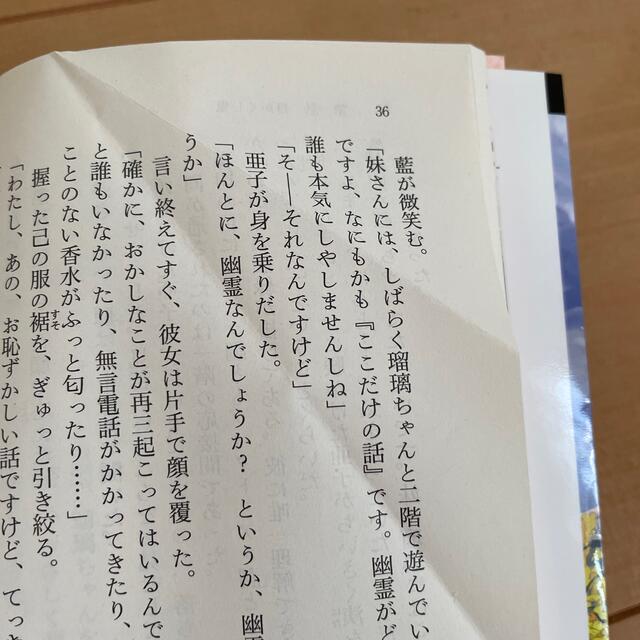 36
藍が微笑む。
「妹さんには、しばらく瑠璃ちゃんと二階で遊んでい
ですよ、なにもかも『ここだけの話』です。幽霊がど
誰も本気にしやしませんしね」
「そ――それなんですけど」
亜子が身を乗りだした。
「ほんとに、幽霊なんでしょうか？　というか、幽
うか」
言い終えてすぐ、彼女は片手で顔を覆った。
「確かに、おかしなことが再三起こってはいるんで
と誰もいなかったり、無言電話がかかってきたり、
ことのない香水がふっと匂ったり……」
握った己の服の裾を、ぎゅっと引き絞る。
すそ
「わたし、あの、お恥ずかしい話ですけど、てっ